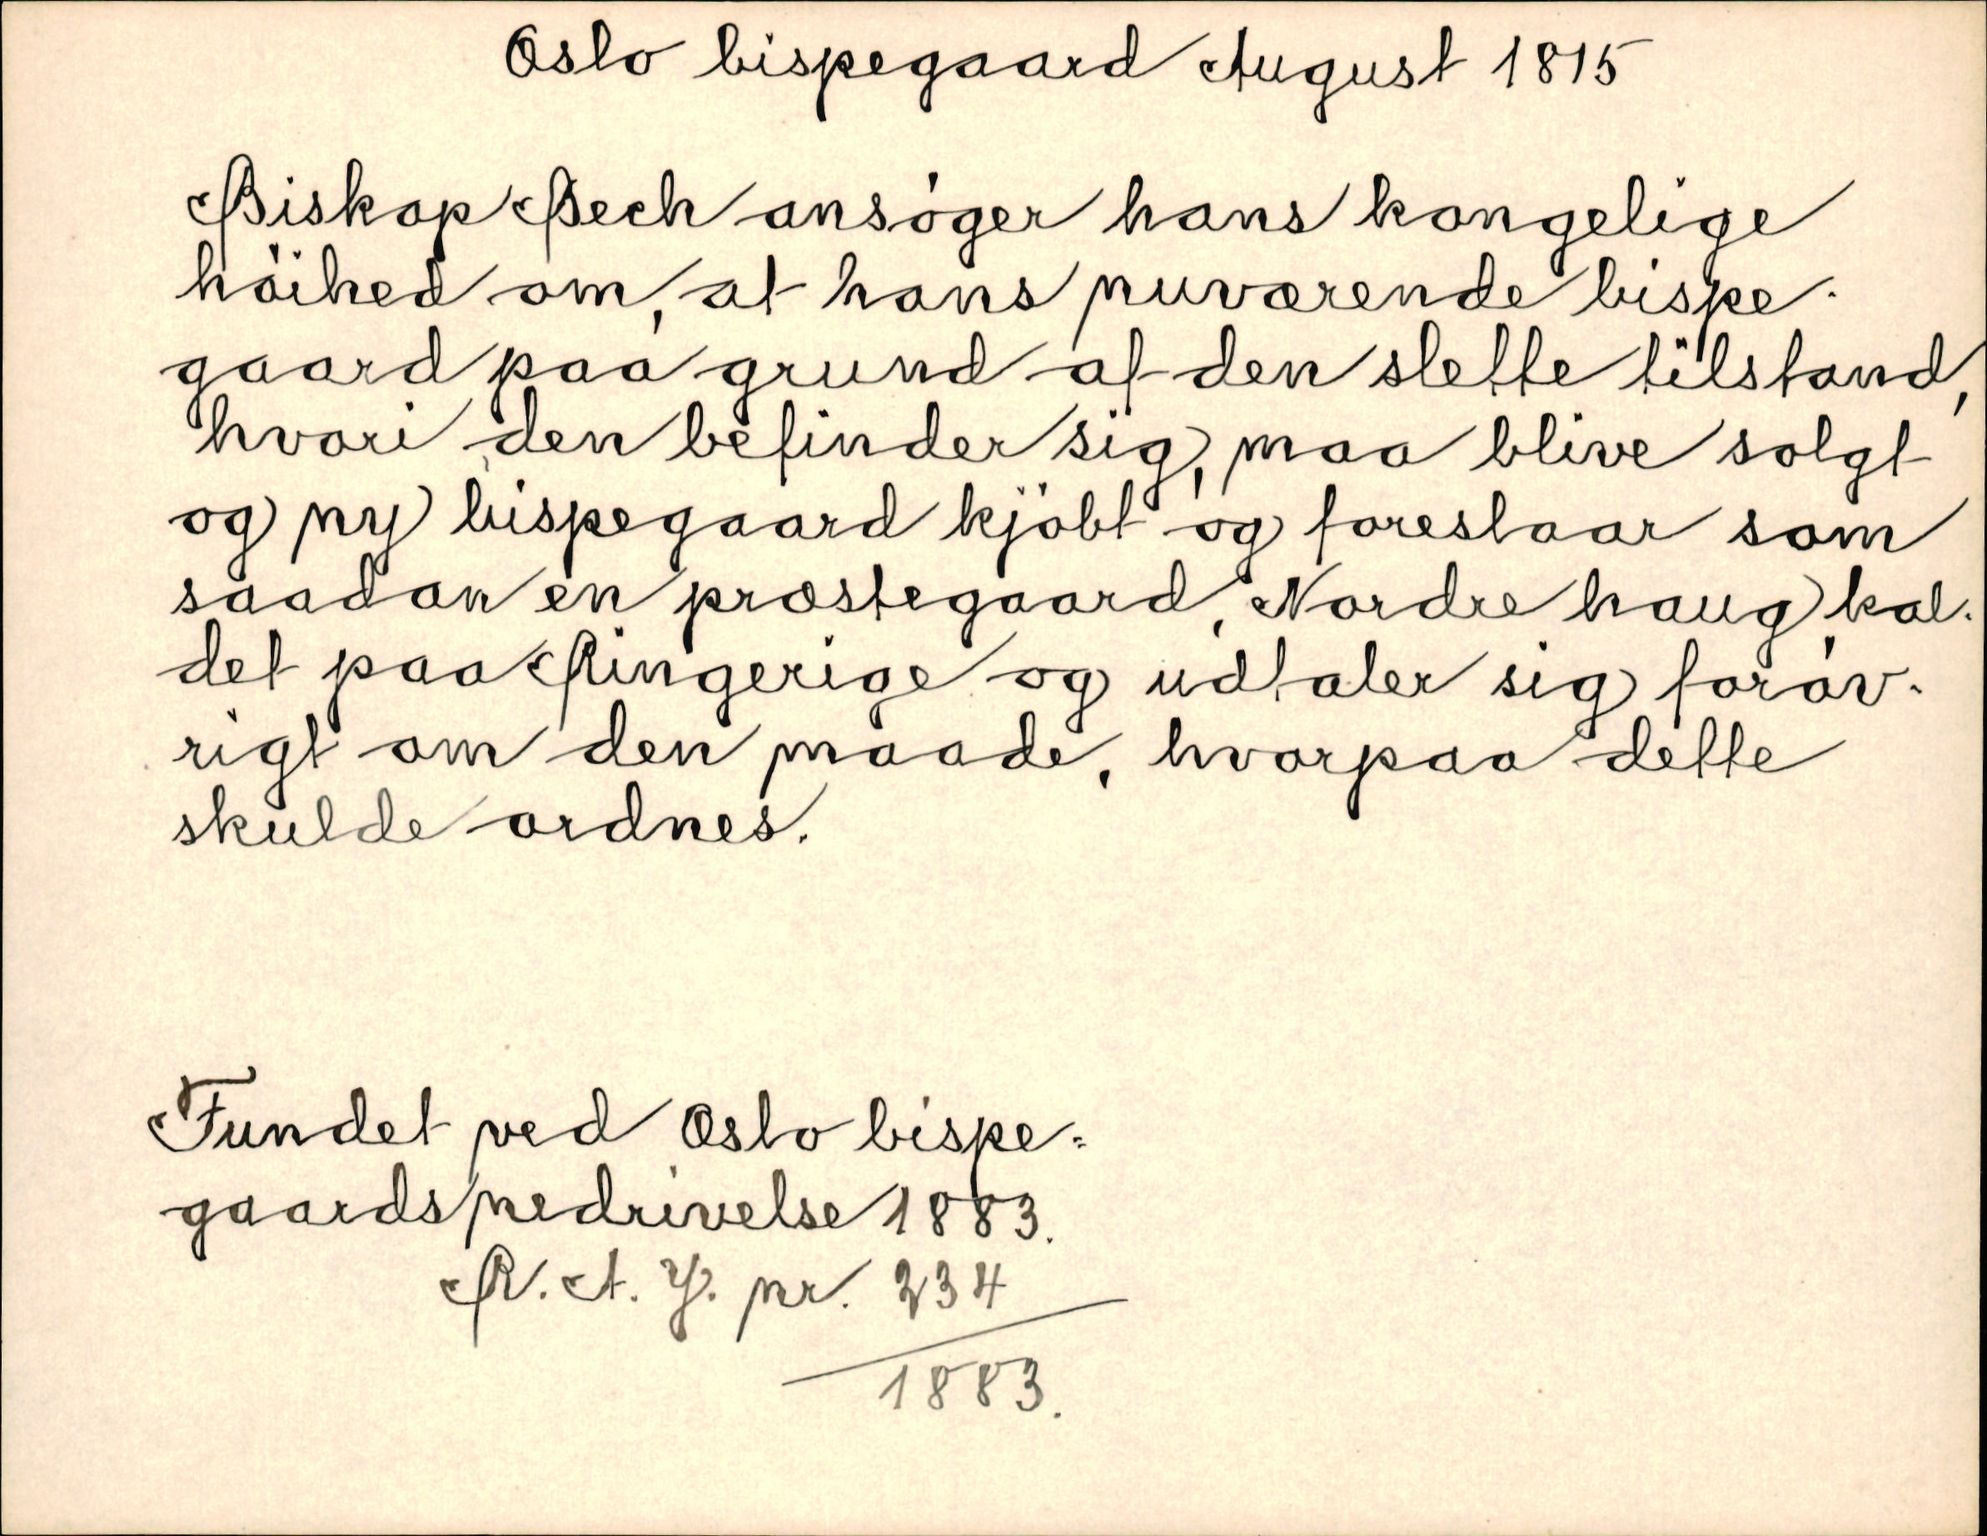 Oslo bispegaard August 1815
Biskop Bech ansöger hans kongelige
höihed om, at hans nuværende bispe-
gaard paa grund af den slette tilstand,
hvori den befinder sig, maa blive solgt
og ny bispegaard kjöbt og foreslaar som
saadan en præstegaard, Nordre haug kal-
det paa Ringerige og udtaler sig foröv-
rigt om den maade, hvorpaa dette
skulde ordnes.
Fundet ved Oslo bispe-
gaards nedrivelse 1883.
R. A. J. nr. 234
1883.